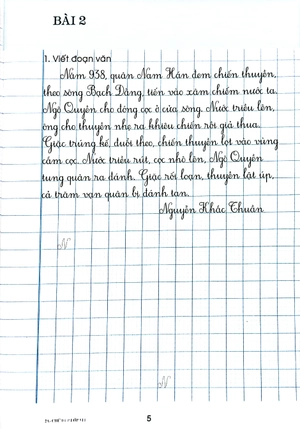 BÀI 2
1. Viết đoạn văn
Năm 938, quân Nam Hán đem chiến thuyền,
theo sông Bạch Đằng, tiến vào xâm chiếm nước ta.
Ngô Quyền cho đóng cọc ở cửa sông. Nước triều lên,
ông cho thuyền nhẹ ra khiêu chiến rồi giả thua.
Giặc trúng kế, đuổi theo, chiến thuyền lọt vào vùng
cắm cọc. Nước triều rút, cọc nhô lên, Ngô Quyền
tung quân ra đánh. Giặc rối loạn, thuyền lật úp,
cả trăm vạn quân bị đánh tan.
Nguyễn Khắc Thuần
N
N
5